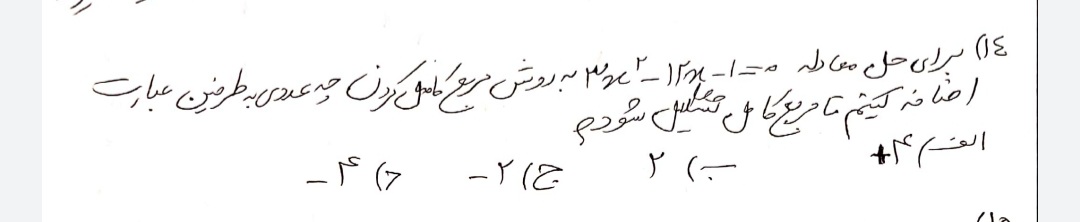 ۱۴) برای حل معادله ۳x^۲ - ۱۲x - ۱ = ۰ به روش مربع کامل کردن چه عددی به طرفین عبارت
اضافه کنیم تا مربع کامل تشکیل شود؟
الف) ۴+ ب) ۲ ج) ۲- د) ۴-